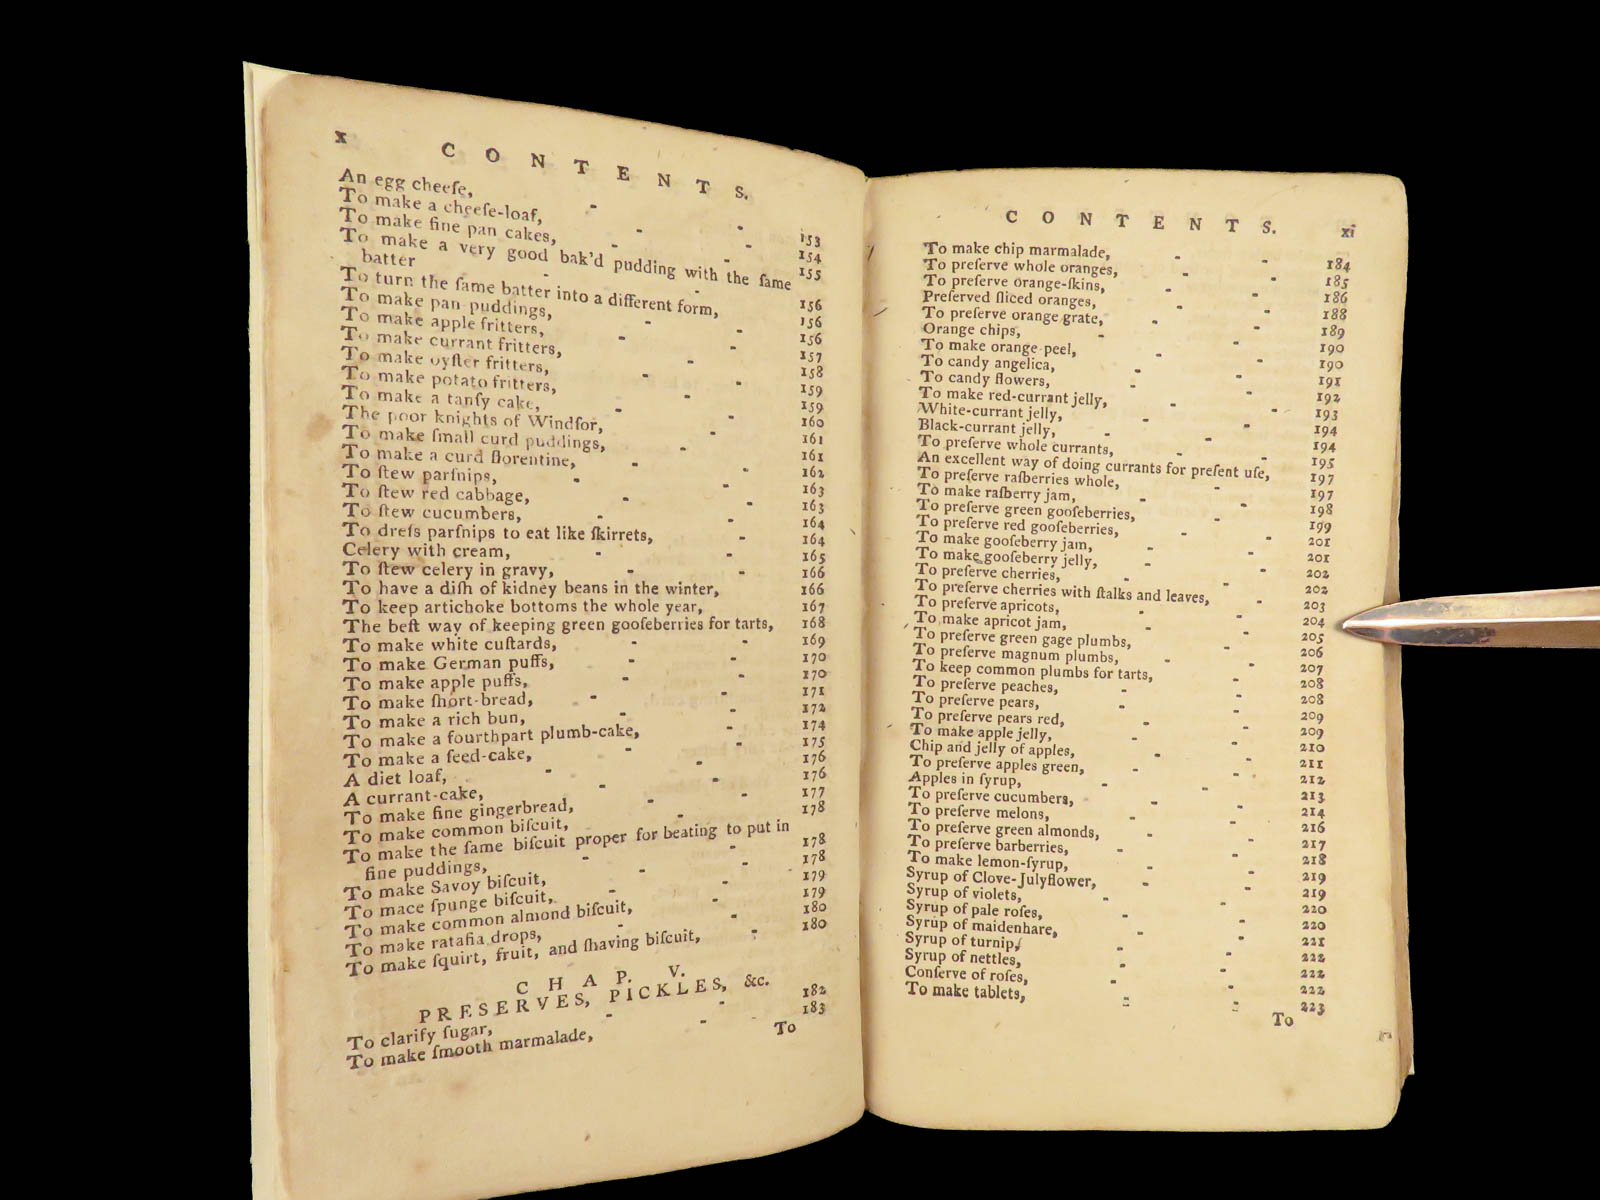 x C O N T E N T S.
An egg cheeſe, - - 153
To make a cheeſe-loaf, - - 154
To make fine pan cakes, - - 155
To make a very good bak'd pudding with the ſame
batter - - 156
To turn the ſame batter into a different form, 156
To make pan puddings, - - 156
To make apple fritters, - - 157
To make currant fritters, - - 158
To make oyſter fritters, - - 159
To make potato fritters, - - 159
To make a tanſy cake, - - 160
The poor knights of Windſor, - 161
To make ſmall curd puddings, - 161
To make a curd florentine, - - 162
To ſtew parſnips, - - 163
To ſtew red cabbage, - - 163
To ſtew cucumbers, - - 164
To dreſs parſnips to eat like ſkirrets, - 164
Celery with cream, - - 165
To ſtew celery in gravy, - - 166
To have a diſh of kidney beans in the winter, 166
To keep artichoke bottoms the whole year, 167
The beſt way of keeping green gooſeberries for tarts, 168
To make white cuſtards, - - 169
To make German puffs, - - 170
To make apple puffs, - - 170
To make ſhort-bread, - - 171
To make a rich bun, - - 172
To make a fourthpart plumb-cake, - 174
To make a ſeed-cake, - - 175
A diet loaf, - - 176
A currant-cake, - - 176
To make fine gingerbread, - - 177
To make common biſcuit, - - 178
To make the ſame biſcuit proper for beating to put in
fine puddings, - - 178
To make Savoy biſcuit, - - 178
To mace ſpunge biſcuit, - - 179
To make common almond biſcuit, - 179
To make ratafia drops, - - 180
To make ſquirt, fruit, and ſhaving biſcuit, - 180
C H A P. V.
PRESERVES, PICKLES, &c.
To clarify ſugar, - - 182
To make ſmooth marmalade, - 183
To
C O N T E N T S. xi
To make chip marmalade, - - 184
To preſerve whole oranges, - - 185
To preſerve orange-ſkins, - - 186
Preſerved ſliced oranges, - - 188
To preſerve orange grate, - - 189
Orange chips, - - 190
To make orange peel, - - 190
To candy angelica, - - 191
To candy flowers, - - 192
To make red-currant jelly, - - 193
White-currant jelly, - - 194
Black-currant jelly, - - 194
To preſerve whole currants, - - 195
An excellent way of doing currants for preſent uſe, 197
To preſerve raſberries whole, - 197
To make raſberry jam, - - 198
To preſerve green gooſeberries, - 199
To preſerve red gooſeberries, - - 201
To make gooſeberry jam, - - 201
To make gooſeberry jelly, - - 202
To preſerve cherries, - - 202
To preſerve cherries with ſtalks and leaves, - 203
To preſerve apricots, - - 204
To make apricot jam, - - 205
To preſerve green gage plumbs, - 206
To preſerve magnum plumbs, - - 207
To keep common plumbs for tarts, - 208
To preſerve peaches, - - 208
To preſerve pears, - - 209
To preſerve pears red, - - 209
To make apple jelly, - - 210
Chip and jelly of apples, - - 211
To preſerve apples green, - - 212
Apples in ſyrup, - - 213
To preſerve cucumbers, - - 214
To preſerve melons, - - 216
To preſerve green almonds, - - 217
To preſerve barberries, - - 218
To make lemon-ſyrup, - - 219
Syrup of Clove-Julyflower, - - 219
Syrup of violets, - - 220
Syrup of pale roſes, - - 220
Syrup of maidenhare, - - 221
Syrup of turnip, - - 222
Syrup of nettles, - - 222
Conſerve of roſes, - - 222
To make tablets, - - 223
To